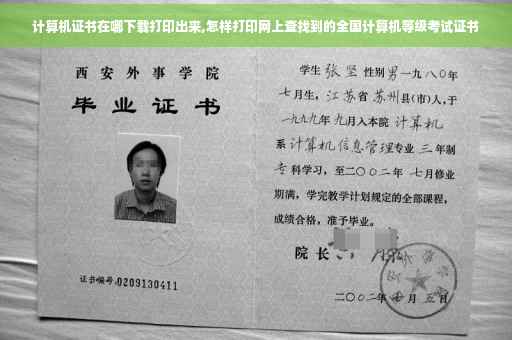 计算机证书在哪下载打印出来,怎样打印网上查找到的全国计算机等级考试证书
西安外事学院
毕业证书
证书编号:0209130411
学生 张坚 性别 男 一九八〇年
七月生,江苏省 苏州县(市)人,于
一九九九年 九月入本院 计算机
系 计算机信息管理专业 三 年制
专科学习,至二〇〇二年 七月修业
期满,学完教学计划规定的全部课程,
成绩合格,准予毕业。
院长
二〇〇二年 月 五日